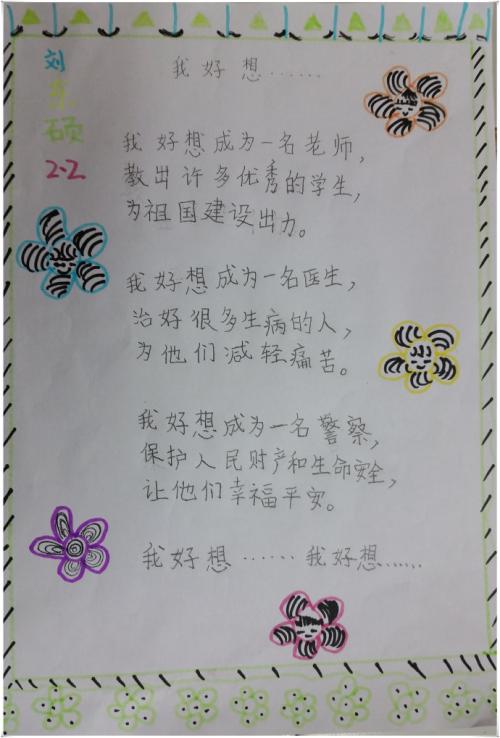 我好想……
刘东硕
2.2
我好想成为一名老师，
教出许多优秀的学生，
为祖国建设出力。
我好想成为一名医生，
治好很多生病的人，
为他们减轻痛苦。
我好想成为一名警察，
保护人民财产和生命安全，
让他们幸福平安。
我好想……我好想……